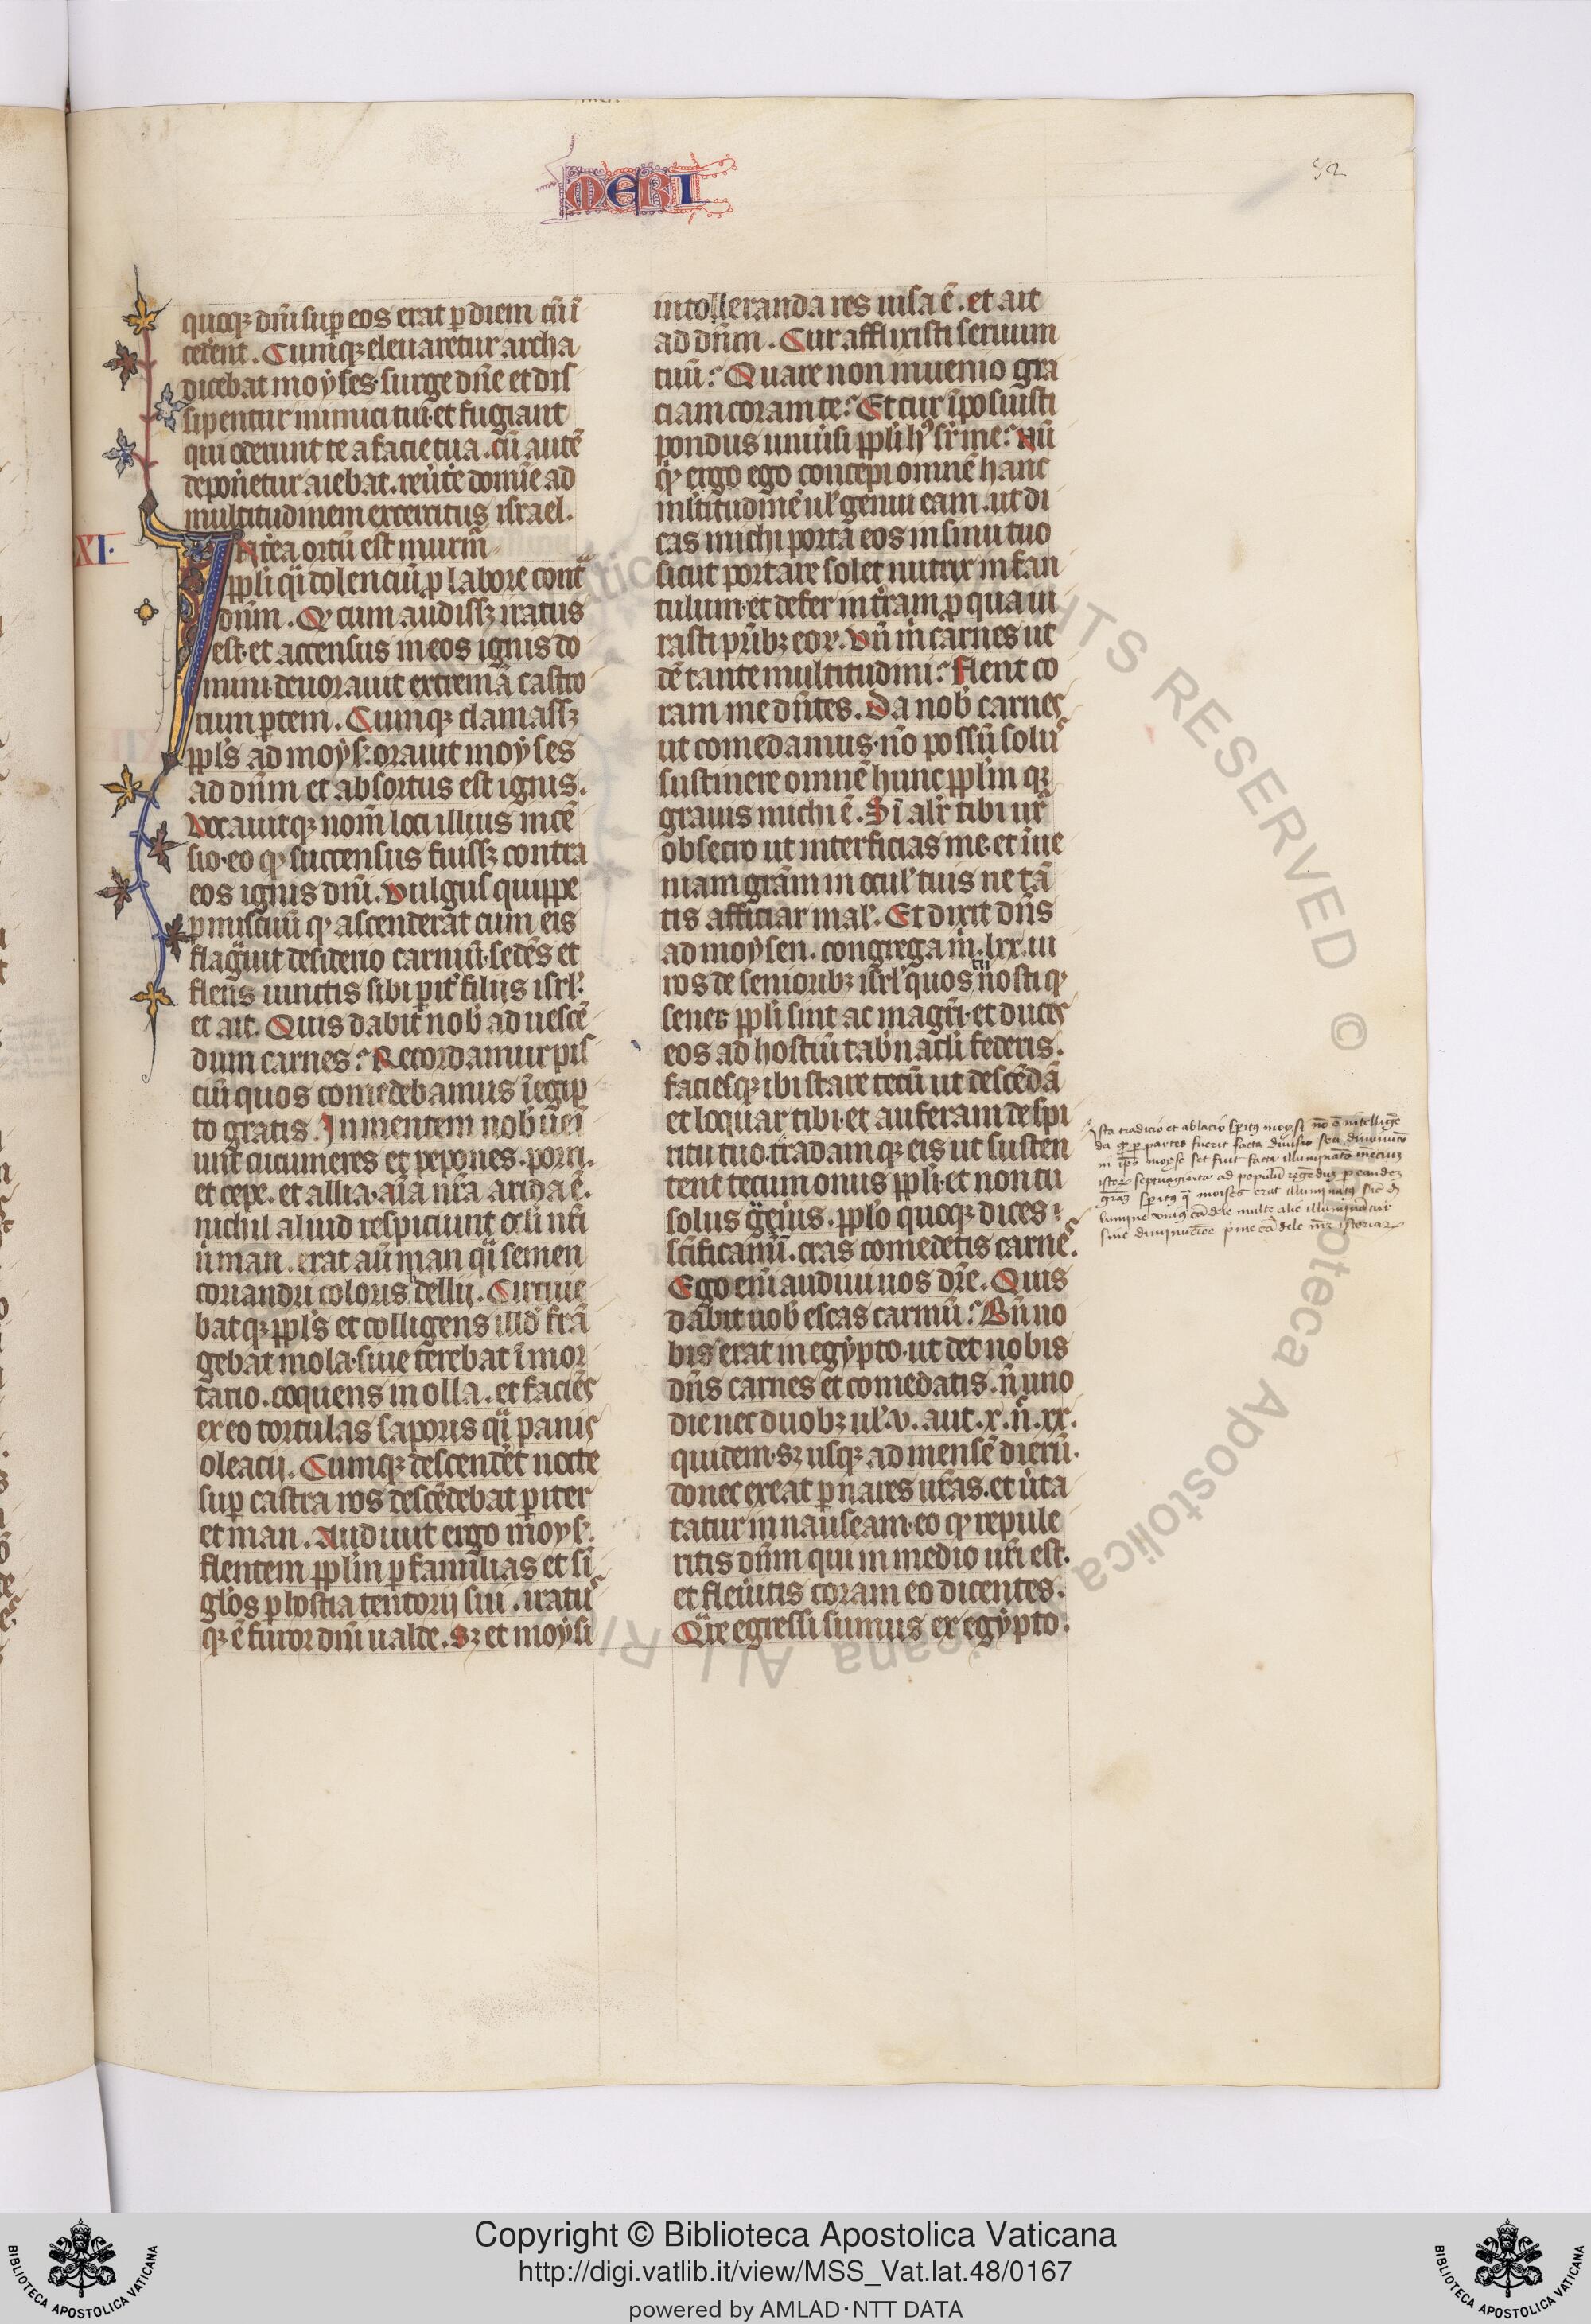 MERI
82
quoqꝫ dn̄i sup̱ eos erat p̱ diem cū ī
cedēnt. Cumqꝫ eleuaretur archa
dicebat moyses. surge dn̄e et dis
sipentur inimici tui. et fugiant
qui oderunt te a facie tua. cū autē
deponetur aiebat. reūtē domīe ad
multitudinem excercitus israel.
XI.
INtēa ortū est murm̄
pp̄li qͣi dolenciū p̱ labore contͣ
dn̄m. Q̄ cum audissꝫ iratus
est. et accensus in eos ignis do
mini deuorauit extremā castro
rum p̱tem. Cumqꝫ clamassꝫ
pp̄ls ad moys̄. orauit moyses
ad dn̄m et absortus est ignis.
Vocauitqꝫ nom̄ loci illius incē
sio. eo ꝙ succensus fuissꝫ contra
eos ignis dn̄i. Vulgus quippe
p̱miscuū ꝙ ascenderāt cum eis
flagͣuit desiderio carniū. sedēs et
flens iunctis sibi p̱it̄ filijs isrl̄.
et ait. Quis dabit nob̄ ad uescē
dum carnes? Recordamur pis
ciū quos comedebamus ī egip
to gratis. In mentem nob̄ ūei
unt cucumeres et pepones. porri.
et cepe. et allia. aīa nr̄a arida ē.
nichil aliud respiciunt ocl̄i nr̄i
n̄ man. erat aū man qͣi semen
coriandri coloris bdellij. Circuie
batqꝫ pp̄ls et colligens illd̄ frā
gebat mola. siue terebat ī mor
tario. coquens in olla. et faciēs
ex eo tortulas saporis qͣi panis
oleacij. Cumqꝫ descenderet nocte
sup̱ castra ros descēdebat p̱iter
et man. Audiuit ergo moys̄.
flentem pp̄lm p̱ familias et sī
gl̄os p̱ hostia tentorij sui. iratuˢ
qꝫ ē furor dn̄i ualde. Sꝫ et moysi
intolleranda res uisa ē. et ait
ad dn̄m. Cur afflixisti seruum
tuū? Quare non inuenio gra
ciam coram te? Et cur īposuisti
pondus uniūsi pp̄li hꝰ sr̄ me? Nū
qͥd ergo ego concepi omnē hanc
ml̄titudinē ul̄ genui eam. ut di
cas michi porta eos in sinu tuo
sicut portare solet nutrix infan
tulum. et defer in tr̄am p̱ qua iu
rasti pr̄ibꝫ eoꝝ. Vn̄ m̄ carnes ut
dē tante multitudini? flent co
ram me dn̄tes. Da nob̄ carnes
ut comedamus. nō possū soluˢ
sustinere omnē hunc pp̄lm qꝫ
grauis michi ē. Si alr̄ tibi ur̄
obsecro ut interficias me. et īue
niam gr̄am in ocul̄ tuis ne tā
tis afficiar mal̄. Et dixit dn̄s
ad moysen. congrega m̄ .lxx. ui
ros de senioribꝫ isrl̄ quos tu nosti ꝙ
senes pp̄li sint ac magr̄i. et duces
eos ad hostiū tabn̄acl̄i federis.
faciesqꝫ ibi stare tecū ut descēdā
et loquar tibi. et auferam de spi
ritu tuo. tradamqꝫ eis ut susten
tent tecum onus pp̄li. et non tu
solus gͣūeris. pp̄lo quoqꝫ dices.
sc̄ificamī. cras comedetis carneˢ.
Ego em̄ audiui uos dr̄e. Quis
dabit nob̄ escas carniū? Bn̄ no
bis erat in egypto. ut det nobis
dn̄s carnes et comedatis. n̄ uno
die nec duobꝫ ul̄ .v. aut .x. n̄ .xx.
quidem. sꝫ usqꝫ ad mensē dierū.
donec exeat p̱ nares ur̄as. et ūta
tatur in nauseam. eo ꝙ repule
ritis dn̄m qui in medio ur̄i est.
et fleūitis coram eo dicentes.
Qͣre egressi sumus ex egypto.
Ista tradicio et ablacio spīrꝰ moysi nō ē intelligē
da ꝙ p̱ partes fuerit facta diuisio seu diminucō
in ip̄o moyse set fuit facta illuminatō mēciuꝫ
istoꝝ septuaginta ad populū regēduꝫ p̱ eandeꝫ
gr̄aꝫ spīrꝰ qͣ moises erat illuminatꝰ sic̄ de
lumine vniꝰ cādele multe alie illuminātur
sine diminucōe prime cādele mꝫ istoriaꝝ
Copyright © Biblioteca Apostolica Vaticana
http://digi.vatlib.it/view/MSS_Vat.lat.48/0167
powered by AMLAD·NTT DATA
BIBLIOTECA APOSTOLICA VATICANA
BIBLIOTECA APOSTOLICA VATICANA